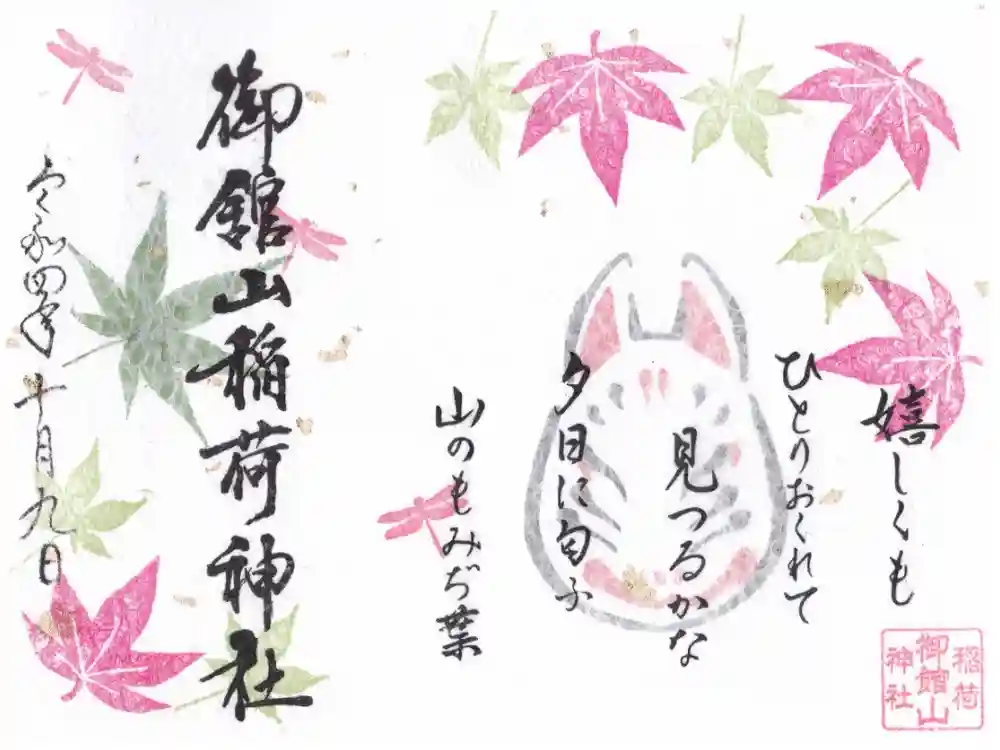 嬉しくも
ひとりおくれて
見つるかな
夕日に匂ふ
山のもみぢ葉
御館山稲荷神社
令和四年十月九日
稲荷
御館山
神社